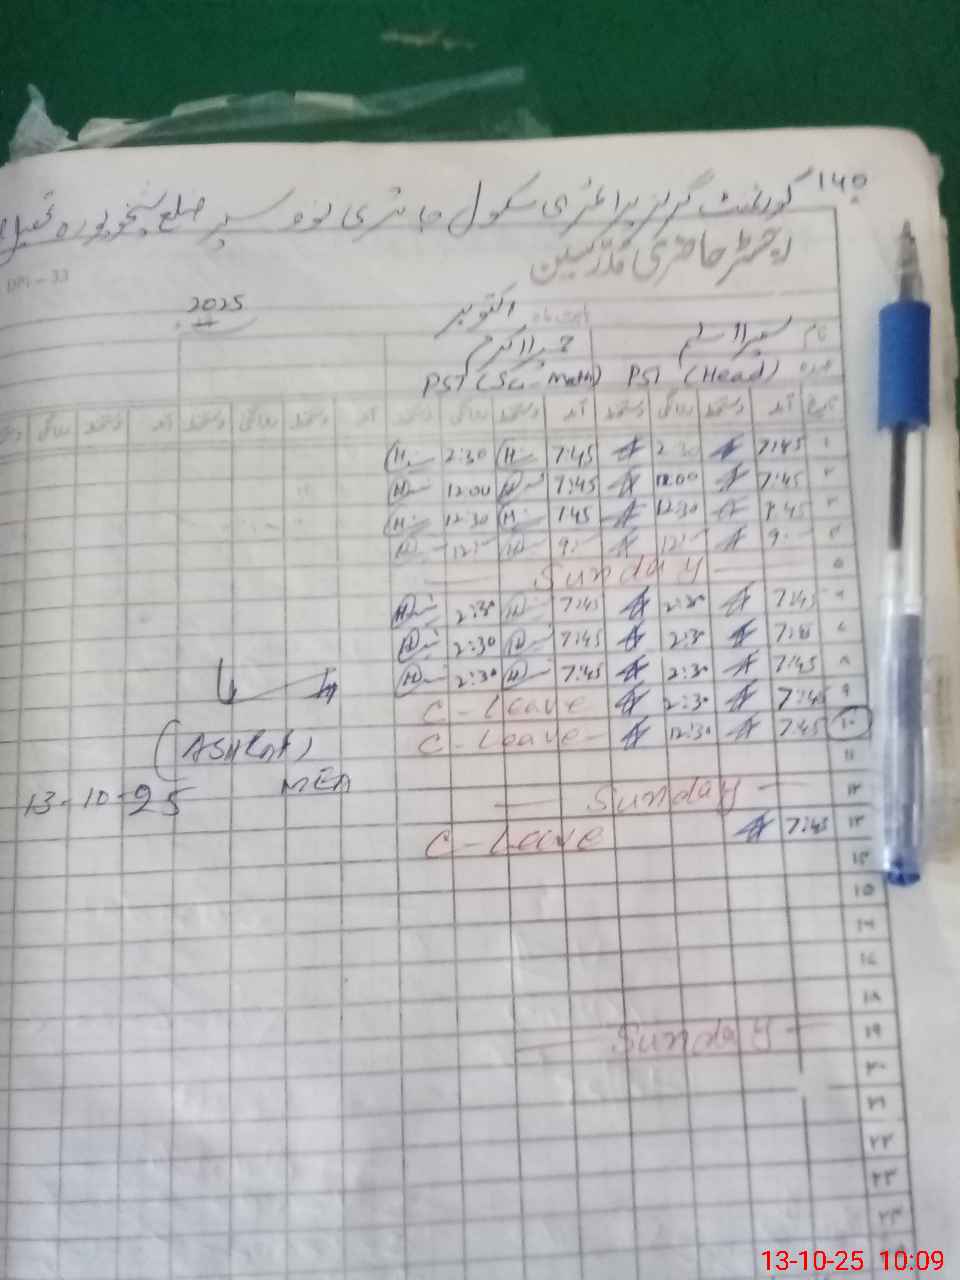 140
گورنمنٹ گرلز پرائمری سکول جاتری نوہ سپر ضلع شیخوپورہ
رجسٹر حاضری مدرسین
DPI - 33
2025 اکتوبر بابت ماہ
نام سمیرا اسلم حمیرا اکرم
عہدہ PST (Head) PST (Sci-Math)
تاریخ آمد دستخط روانگی دستخط آمد دستخط روانگی دستخط آمد دستخط روانگی دستخط آمد دستخط روانگی
۱ 7:45 2:30 7:45 H 2:30 H
۲ 7:45 12:00 7:45 H 12:00 H
۳ 7:45 12:30 7:45 H 12:30 H
۴ 9:- 12:- 9:- H 12:- H
۵ Sunday
۶ 7:45 2:30 7:45 H 2:30 H
۷ 7:45 2:30 7:45 H 2:30 H
۸ 7:45 2:30 7:45 H 2:30 H
۹ 7:45 2:30 C-Leave
۱۰ 7:45 12:30 C-Leave
(ASHRAF)
۱۱
MEA
13-10-25
۱۲ Sunday
۱۳ 7:45 C-Leave
۱۴
۱۵
۱۶
۱۷
۱۸
۱۹ Sunday
۲۰
۲۱
۲۲
۲۳
۲۴
13-10-25 10:09